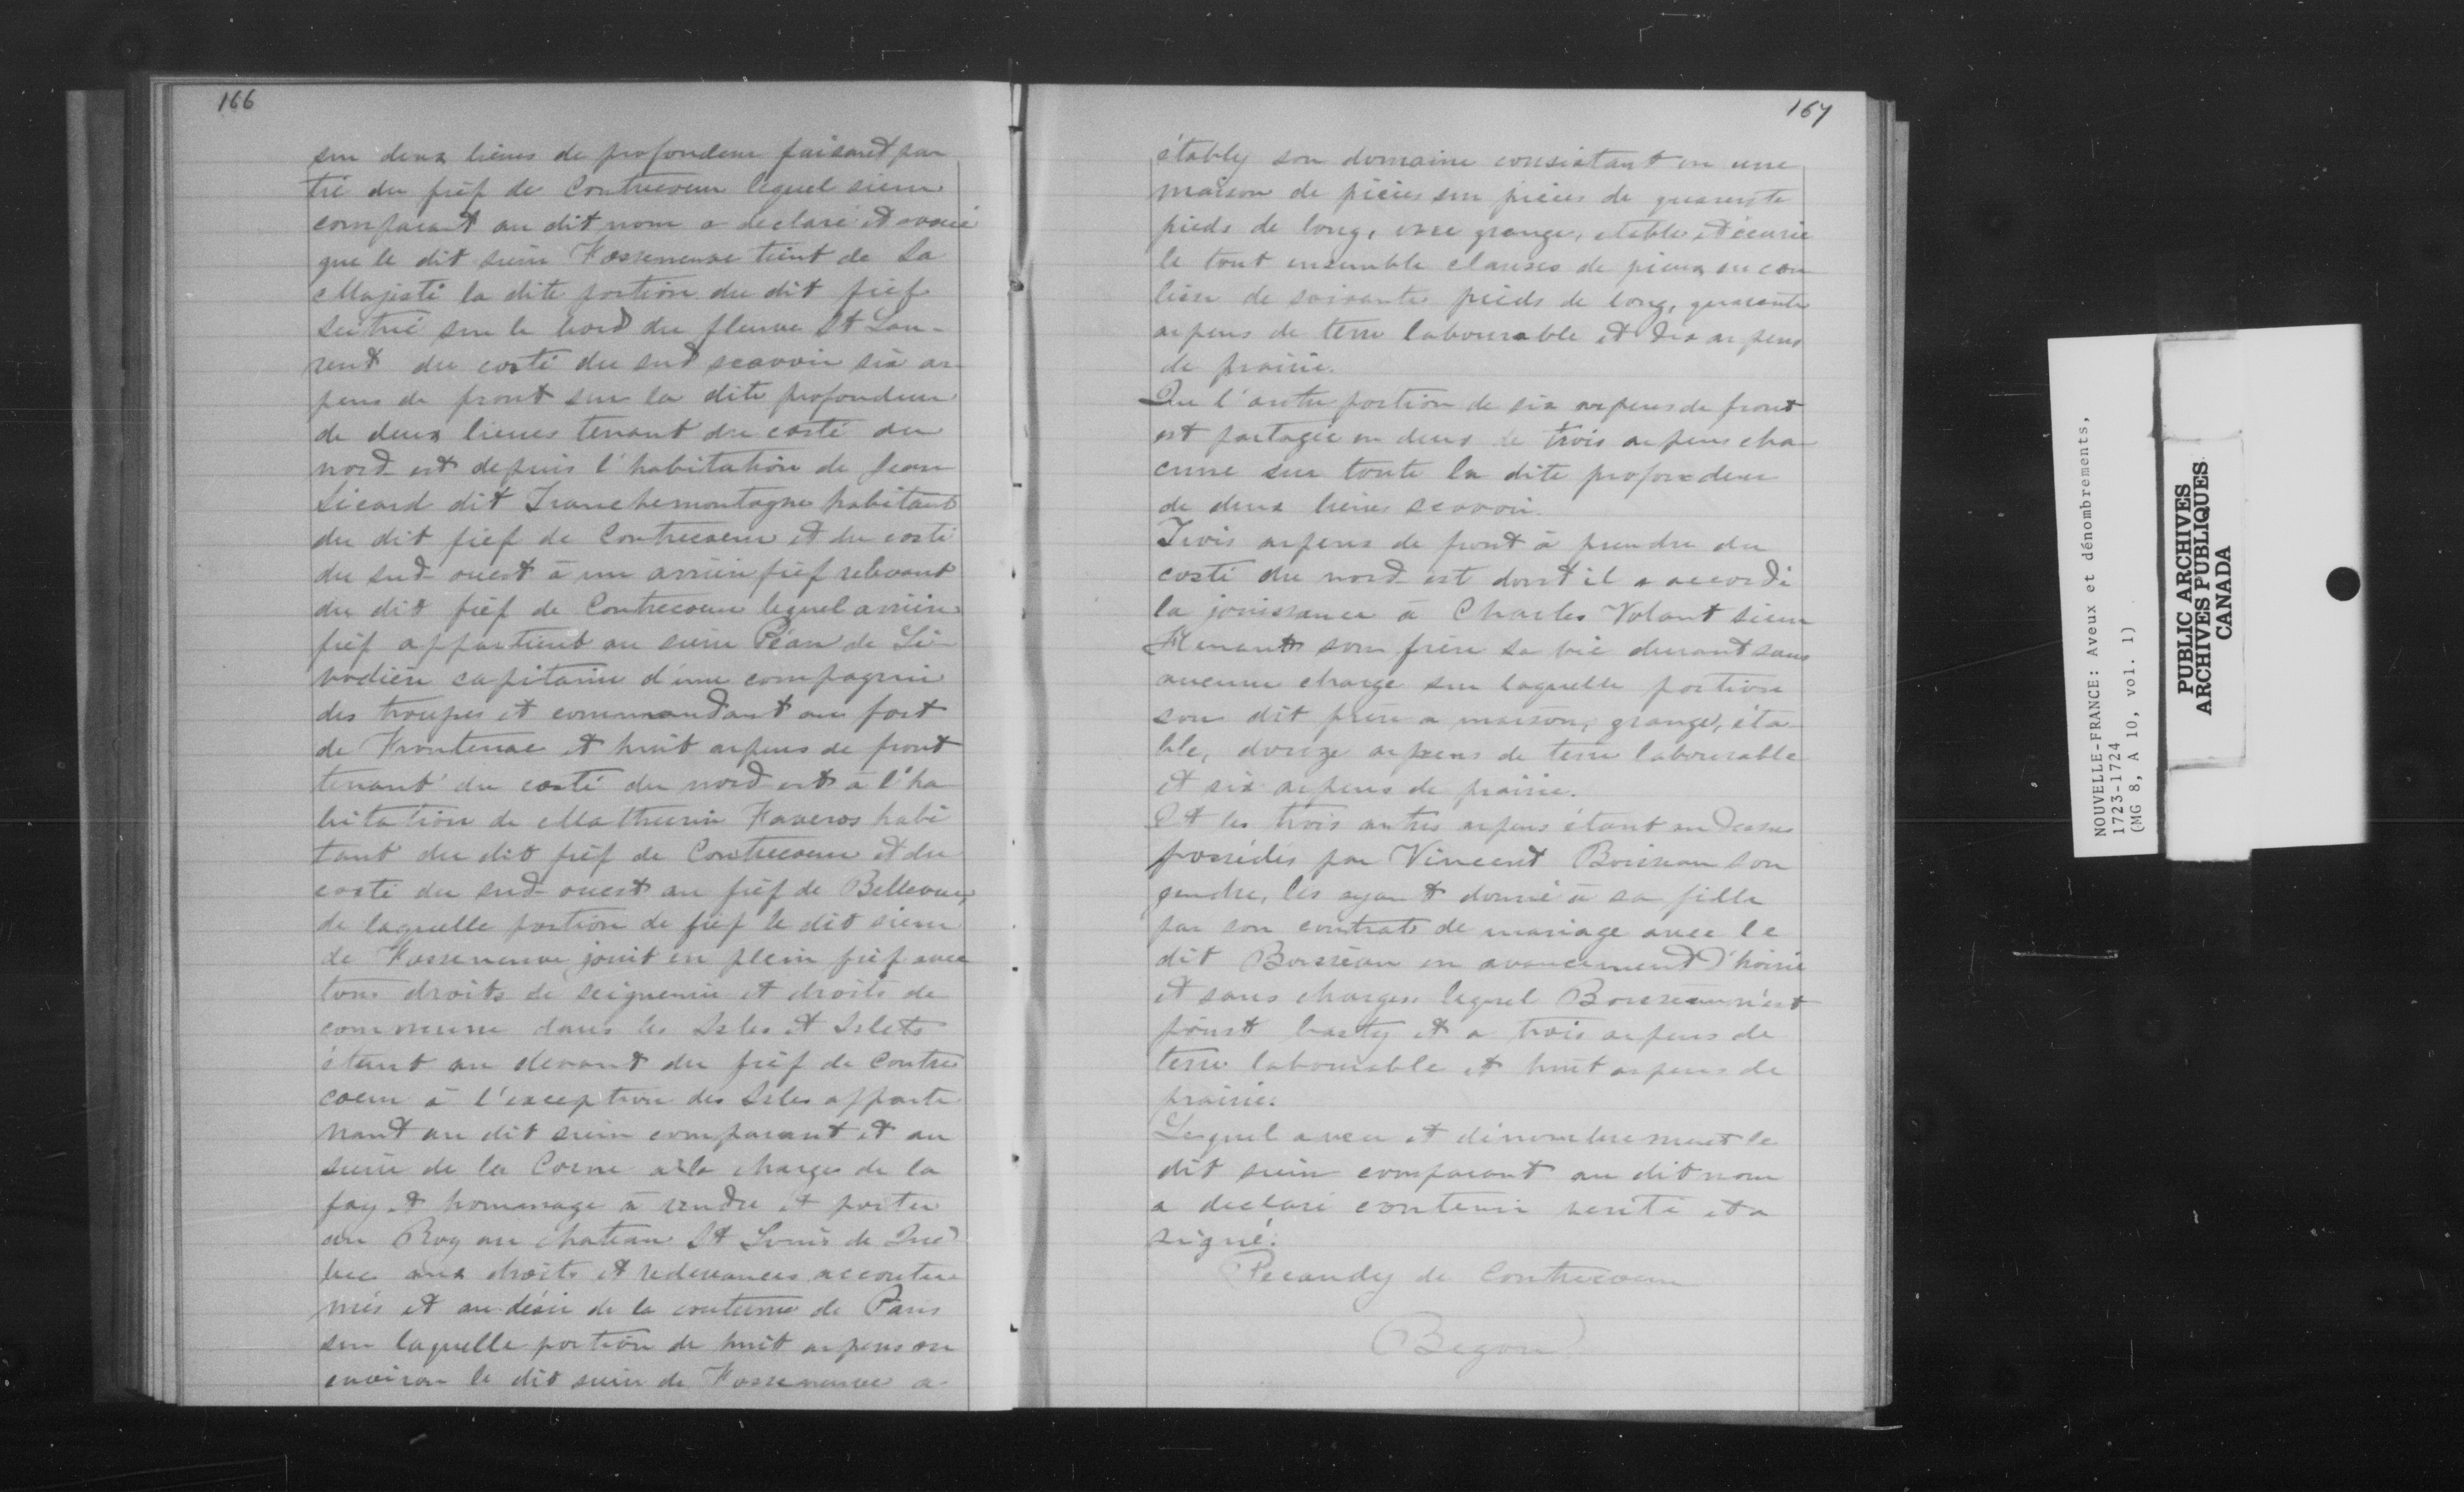 166
sur deux lieues de profondeur faisant par
tie du fief de Contrecoeur lequel sieur
comparant au dit nom a declaré et avoué
que le dit sieur Fosseneuve tient de Sa
Majesté la dite portion du dit fief
scitué sur le bord du fleuve St Lau-
rent du costé du sud scavoir six ar-
pens de front sur la dite profondeur
de deux lieues tenant du costé du
nord est depuis l'habitation de Jean
Sicard dit Tranchemontagne habitant
du dit fief de Contrecoeur et du costé
du sud-ouest à un arrière fief relevant
du dit fief de Contrecoeur lequel arrière
fief appartient au sieur Péan de Li-
vodière capitaine d'une compagnie
des troupes et commandant au fort
de Frontenac et huit arpens de front
tenant du costé du nord est à l'ha
bitation de Mathurin Faveros habi
tant du dit fief de Contrecoeur et du
costé du sud-ouest au fief de Bellevue,
de laquelle portion de fief le dit sieur
de Fosseneuve jouit en plein fief avec
tous droits de seigneurie et droits de
commune dans les Isles et Islets
étant au devant du fief de Contre
coeur à l'exception des Isles apparte
nant au dit sieur comparant et au
sieur de la Corne à la charge de la
foy et hommage à rendre et porter
au Roy au chateau St Louis de Qué
bec aux droits et redevances accoutu
més et au désir de la coutume de Paris
sur laquelle portion de huit arpens ou
environ le dit sieur de Fosseneuve a
167
étably son domaine consistant en une
maison de pièces sur pièces de quarente
pieds de long, une grange, etable et écurie
le tout ensemble clauses de pieux en cou
lisse de soixante pieds de long, quarante
arpens de terre labourable et dix arpens
de prairie.
Que l'autre portion de six arpens de front
est partagée en deux de trois arpens cha
cune sur toute la dite profondeur
de deux lieues scavoir.
Trois arpens de front à prendre du
costé du nord-est dont il a accordé
la jouissance à Charles Volant sieur
son frère sa vie durant sans
aucune charge sur laquelle portion
son dit frère a maison, grange, éta
ble, douze arpens de terre labourable
et six arpens de prairie.
Et les trois autres arpens étant au dessus
possédés par Vincent Boisseau son
gendre, les ayant donné à sa fille
par son contrat de mariage avec le
dit Boisseau en avancement d'hoirie
et sans charges lequel Boisseau n'est
point basty et a trois arpens de
terre labourable et huit arpens de
prairie.
Lequel aveu et dénombrement le
dit sieur comparant au dit nom
a declaré contenir verité et a
signé:
Pecaudy de Contrecoeur
Begon
NOUVELLE-FRANCE: Aveux et dénombrements,
1723-1724
(MG 8, A 10, vol. 1)
PUBLIC ARCHIVES
ARCHIVES PUBLIQUES
CANADA